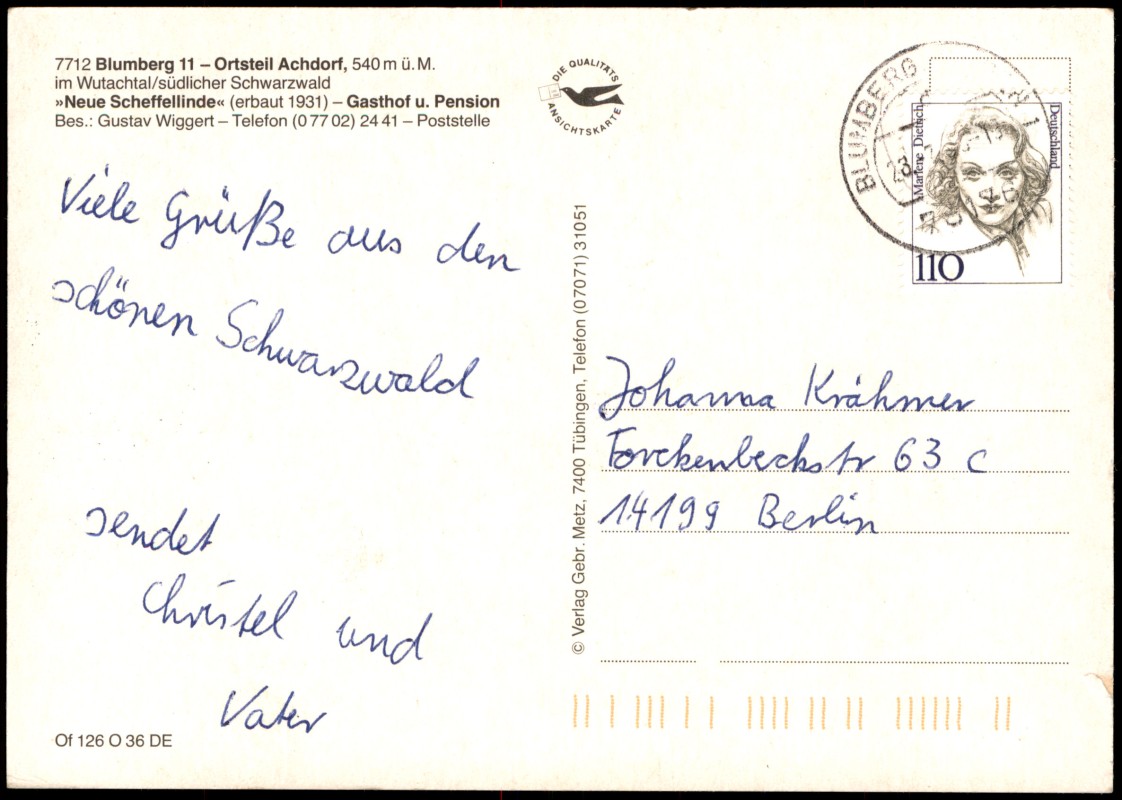 7712 Blumberg 11 – Ortsteil Achdorf, 540 m ü. M.
im Wutachtal/südlicher Schwarzwald
»Neue Scheffellinde« (erbaut 1931) – Gasthof u. Pension
Bes.: Gustav Wiggert – Telefon (0 77 02) 24 41 – Poststelle
DIE QUALITÄTS
ANSICHTSKARTE
Viele Grüße aus den
schönen Schwarzwald
sendet
Christel und
Vater
Of 126 O 36 DE
© Verlag Gebr. Metz, 7400 Tübingen, Telefon (07071) 31051
BLUMBERG
1
Marlene Dietrich
Deutschland
110
Johanna Krähmer
Forckenbeckstr 63 c
14199 Berlin